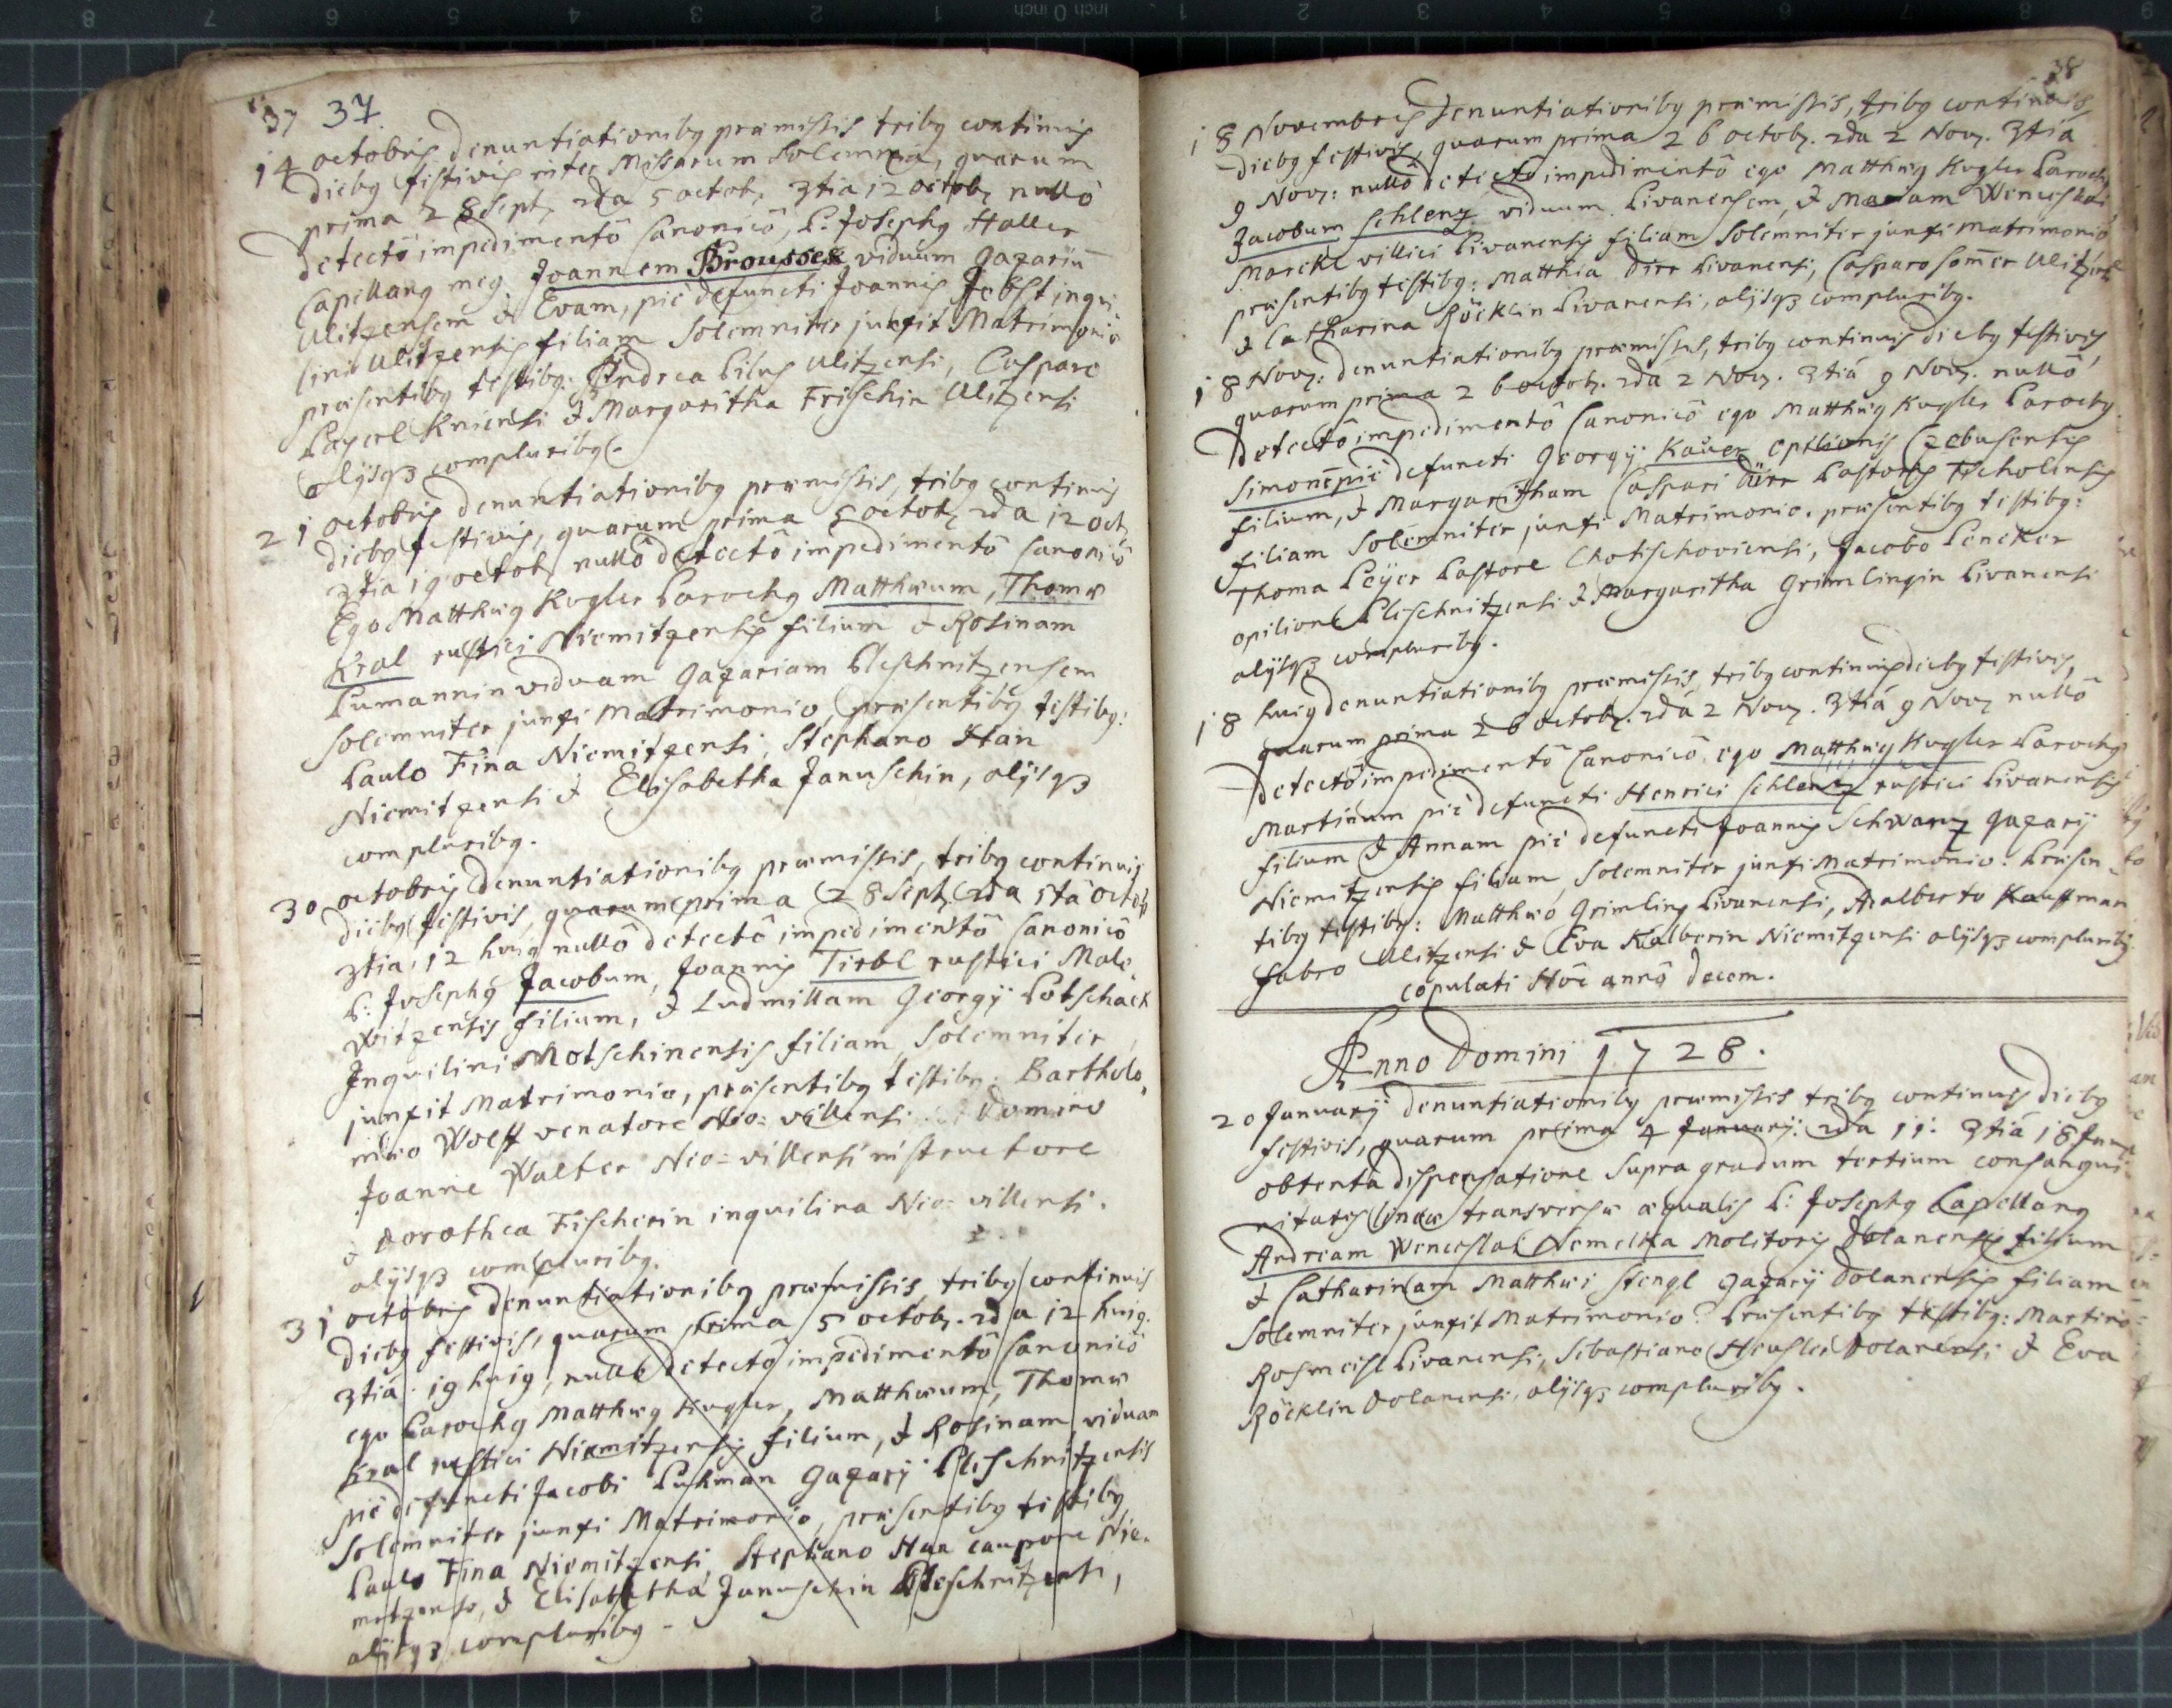 37 37.
14 octobris denuntiationibg præmissis tribg continuis
diebg festivis inter Missarum Solemnia, quarum
prima 28 Sept, 2da 5 octob, 3tia 12 octob, nullô
detectô impedimentô Canonicô, P. Josephg Haller
Capellang meg Joannem Brousseck viduum gazariū
Ulitzensem & Evam, piè defuncti Joannis Jobst inqui-
lini Ulitzensis filiam Solemniter junxit Matrimonio
præsentibg testibg: Andrea Pilus Ulitzensi, Casparo
Payerl Kniensi & Margaritha Frischin Ulitzensi
alijsqз compluribg.
21 octobris denuntiationibg præmissis, tribg continuis
diebg festivis, quarum prima 5 octob, 2da 12 oct,
3tia 19 octob, nullô detectô impedimentô Canonicô
Ego Matthæg Kugler Parochg Matthæum, Thomæ
Kral rustici Niemitzensis filium & Rosinam
Pumannin viduam gazariam Pleschnitzensem
solemniter junxi Matrimonio, præsentibg testibg:
Paulo Fina Niemitzensi, Stephano Han
Niemitzensi & Elisabetha Januschin, alijsqз
compluribg.
30 octobris denuntiationibg præmissis, tribg continuis
diebg festivis, quarum prima 28 Sept, 2da 5ta octob
3tia, 12 huig nullô detectô impedimentô Canonicô
P: Josephg Jacobum, Joannis Tirbl rustici Male-
witzensis filium, & Ludmillam Georgÿ Potschack
Inquilini Motschinensis filiam Solemniter
junxit Matrimonio, præsentibg testibg: Bartholo-
mæo Wolff venatore Neo=villensi Domino
Joanne Walter Neo=villensi instructore
& Dorothea Fischerin inquilina Neo=villensi.
alijsqз compluribg.
31 octobris denuntiationibg præmissis, tribg continuis
diebg festivis, quarum prima 5 octob. 2da 12 huig.
3tiá 19 huig, nullô detectô impedimentô Canonicô
ego Parochg Matthæg Kugler, Matthæum, Thomæ
Kral rustici Niemitzensis filium, & Rosinam viduam
piè defuncti Jacobi Puhman gazarÿ Pleschnitzensis
Solemniter junxi Matrimonio, præsentibg testibg
Paulo Fina Niemitzensi, Stephano Han caupone Nie-
mitzensi, & Elisabetha Januschin Pleschnitzensi,
alijsqз compluribg.
38
18 Novembris Denuntiationibg præmissis, tribg continuis
diebg festivis, quarum prima 26 octob. 2da 2 Nov. 3tiá
9 Nov: nullô detectô impedimentô ego Matthæg Kugler Parochg
Jacobum Schlenz viduum Pivanensem, & Mariam Wenceslai
Marckl villici Pivanensis filiam Solemniter junxi Matrimoniô
præsentibg testibg: Matthia Dirr Pivanensi, Casparo Som̄er Ulitzensi
& Catharina Röcklin Pivanensi, alijsqз compluribg.
18 Nov: denuntiationibg præmissis, tribg continuis diebg festivis
quarum prima 26 octob. 2da 2 Nov. 3tiá 9 Nov. nullô
detectô impedimentô Canonicô ego Matthæg Kugler Parochg
Simonē piè defuncti Georgÿ Kauer opilionis Czebusensis
filium, & Margaritham Caspari Dürr Pastoris Tscholensis
filiam Solemniter junxi Matrimonio. præsentibg testibg:
Thoma Peÿer Pastore Chotischoviensi, Jacobo Pencker
opilione Pleschnitzensi & Margaritha Grimlingin Pivanensi
alijsqз compluribg.
18 huig denuntiationibg præmissis, tribg continuis diebg festivis,
quarum prima 26 octob. 2dá 2 Nov. 3tiá 9 Nov, nullô
detectô impedimentô Canonicô ego Matthæg Kugler Parochg
Martinum piè defuncti Henrici Schlenz rustici Pivanensis
filium & Annam piè defuncti Joannis Schwarz gazarÿ
Niemitzensis filiam, Solemniter junxi Matrimonio. Præsen-
tibg testibg: Matthæo Grimling Pivanensi, Adalberto Kauffman
fabro Ulitzensi & Eva Kalberin Niemitzensi alijsqз compluribg.
copulati Hôc annô decem.
Anno Domini 1728.
20 Januarÿ denuntiationibg præmissis tribg continuis diebg
festivis, quarum prima 4 Januarÿ. 2da 11. 3tiá 18 Janu
obtentâ dispensatione supra gradum tertium consangui-
nitatis lineæ transversæ æqualis P: Josephg Capellang
Andream Wenceslai Nemelka Molitoris Dolanensis filium
& Catharinam Matthæi Stengl gazarÿ Dolanensis filiam
Solemniter junxit Matrimonio. Præsentibg testibg: Martino
Rosmeisl Pivanensi, Sebastiano Heusler Dolanensi & Eva
Röcklin Dolanensi, alijsqз compluribg.